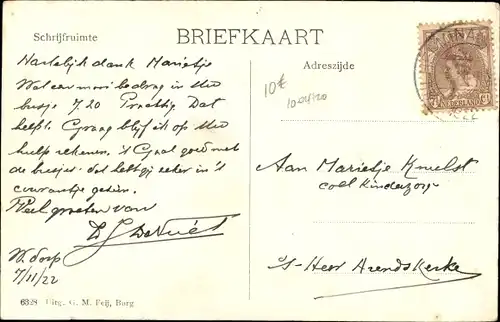 Schrijfruimte
BRIEFKAART
Adreszijde
Hartelijk dank Marietje
Wat een mooi bedrag in Uw
busje 7.20 Prachtig Dat
helpt. Graag blijf ik op Uw
hulp rekenen. 't Gaat goed met
de busjes. dat hebt gij zeker in 't
courantje gezien.
Veel groeten van
W. dorp
7/11/22
10€
NEDERLAND
Aan Marietje
coll Kinderzorg
's-Heer Arendskerke
6328 Uitg. G. M. Feij, Burg